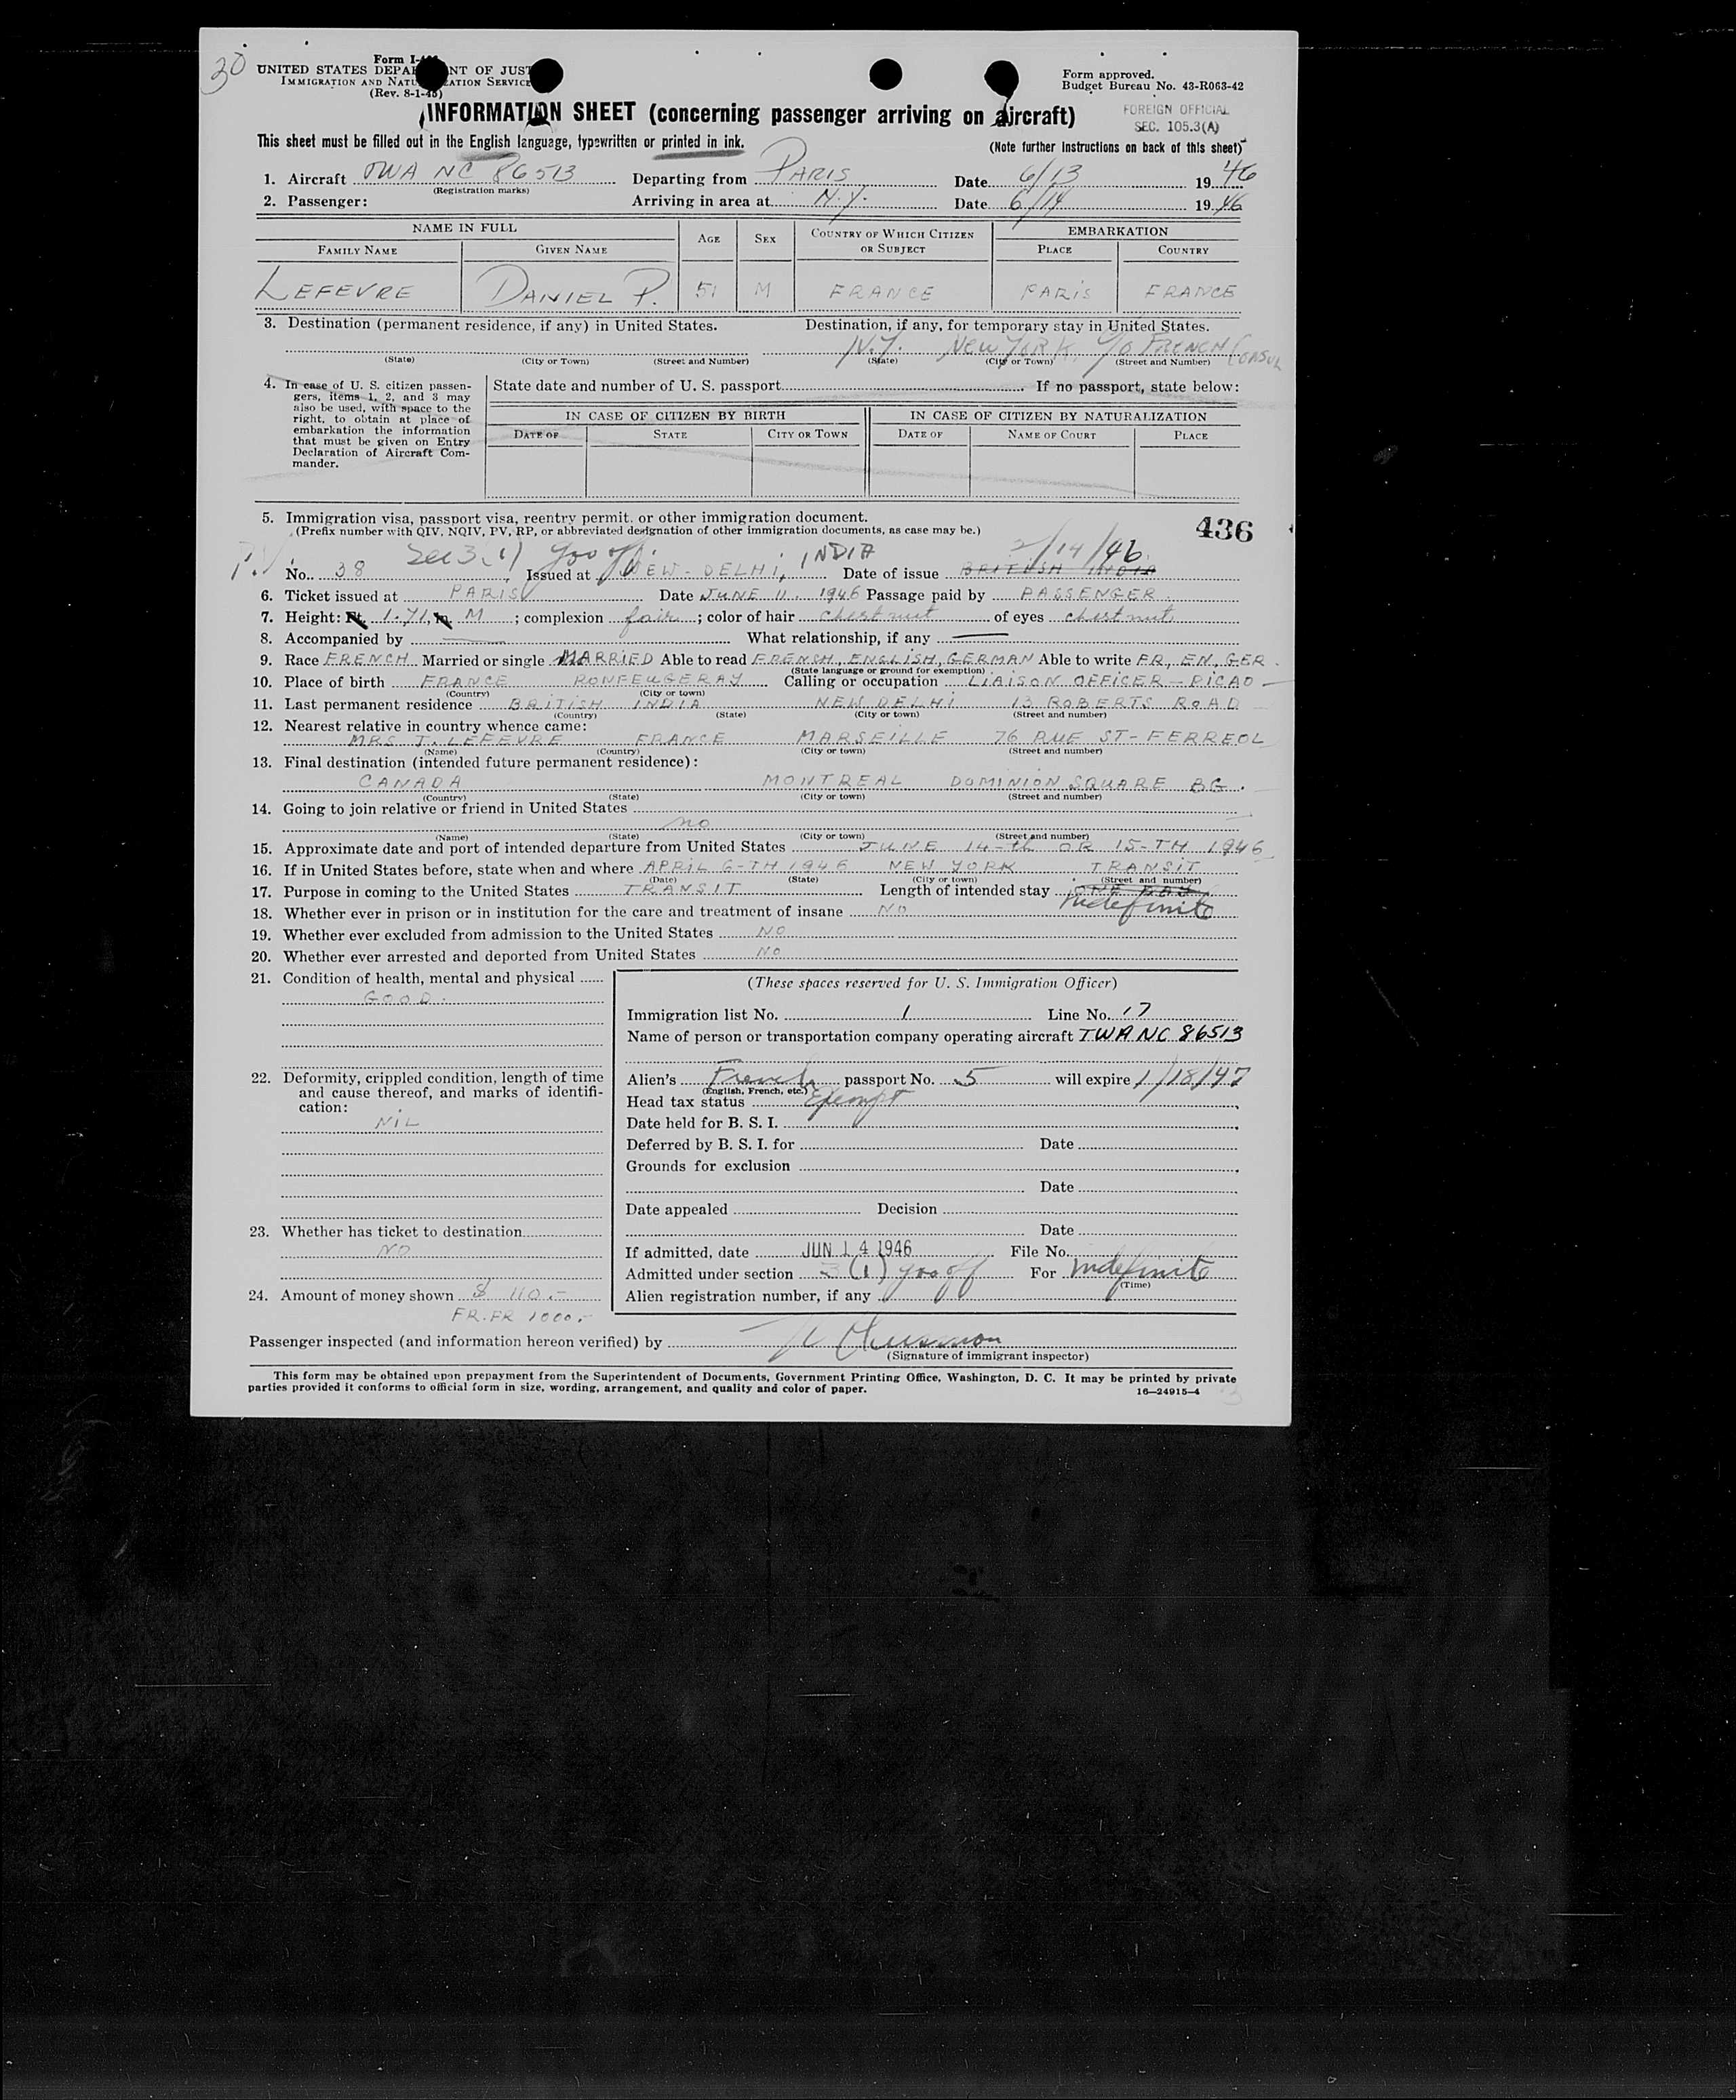 30
Form I-
UNITED STATES DEPA NT OF JUST
IMMIGRATION AND NATU ZATION SERVICE
(Rev. 8-1-45)
Form approved.
Budget Bureau No. 43-R063-42
INFORMATION SHEET (concerning passenger arriving on aircraft)
FOREIGN OFFICIAL
SEC. 105.3(A)
This sheet must be filled out in the English language, typewritten or printed in ink.
(Note further Instructions on back of this sheet)
1. Aircraft TWA NC 86513 Departing from PARIS Date 6/13 1946
(Registration marks)
2. Passenger: Arriving in area at N.Y. Date 6/14 1946
NAME IN FULL AGE SEX COUNTRY OF WHICH CITIZEN OR SUBJECT EMBARKATION
FAMILY NAME GIVEN NAME PLACE COUNTRY
LEFEVRE DANIEL P. 51 M FRANCE PARIS FRANCE
3. Destination (permanent residence, if any) in United States. Destination, if any, for temporary stay in United States.
N.Y. NEW YORK, C/O FRENCH CONSUL
(State) (City or Town) (Street and Number) (State) (City or Town) (Street and Number)
4. In case of U. S. citizen passengers, items 1, 2, and 3 may also be used, with space to the right, to obtain at place of embarkation the information that must be given on Entry Declaration of Aircraft Commander.
State date and number of U. S. passport If no passport, state below:
IN CASE OF CITIZEN BY BIRTH IN CASE OF CITIZEN BY NATURALIZATION
DATE OF STATE CITY OR TOWN DATE OF NAME OF COURT PLACE
5. Immigration visa, passport visa, reentry permit, or other immigration document.
(Prefix number with QIV, NQIV, PV, RP, or abbreviated designation of other immigration documents, as case may be.)
436
P.V. Sec 3(1) gov off. INDIA 2/14/46
No. 38 Issued at NEW-DELHI, Date of issue BRITISH INDIA
6. Ticket issued at PARIS Date JUNE 11. 1946 Passage paid by PASSENGER.
7. Height: Ft. 1.71, in. M ; complexion fair ; color of hair chestnut of eyes chestnut
8. Accompanied by — What relationship, if any —
9. Race FRENCH Married or single MARRIED Able to read FRENCH, ENGLISH, GERMAN Able to write FR, EN, GER.
(State language or ground for exemption)
10. Place of birth FRANCE RONFEUGERAY Calling or occupation LIAISON OFFICER - PICAO -
(Country) (City or town)
11. Last permanent residence BRITISH INDIA NEW DELHI 13 ROBERTS ROAD
(Country) (State) (City or town) (Street and number)
12. Nearest relative in country whence came:
MRS J. LEFEVRE FRANCE MARSEILLE 76 RUE ST-FERREOL
(Name) (Country) (City or town) (Street and number)
13. Final destination (intended future permanent residence):
CANADA MONTREAL DOMINION SQUARE BG.
(Country) (State) (City or town) (Street and number)
14. Going to join relative or friend in United States
no
(Name) (State) (City or town) (Street and number)
15. Approximate date and port of intended departure from United States JUNE 14-th OR 15-TH 1946
16. If in United States before, state when and where APRIL 6-TH 1946 NEW YORK TRANSIT
(Date) (State) (City or town) (Street and number)
17. Purpose in coming to the United States TRANSIT Length of intended stay ONE DAY
Indefinite
18. Whether ever in prison or in institution for the care and treatment of insane NO
19. Whether ever excluded from admission to the United States NO
20. Whether ever arrested and deported from United States NO
21. Condition of health, mental and physical
GOOD.
(These spaces reserved for U. S. Immigration Officer)
Immigration list No. 1 Line No. 17
Name of person or transportation company operating aircraft TWA NC 86513
22. Deformity, crippled condition, length of time and cause thereof, and marks of identification:
NIL
Alien's French passport No. 5 will expire 1/18/47
(English, French, etc.)
Head tax status Exempt
Date held for B. S. I.
Deferred by B. S. I. for Date
Grounds for exclusion
Date
Date appealed Decision
23. Whether has ticket to destination
NO
Date
If admitted, date JUN 14 1946 File No.
Admitted under section 3(1) gov off For Indefinite
(Time)
24. Amount of money shown $ 110.-
FR.FR 1000.-
Alien registration number, if any
Passenger inspected (and information hereon verified) by
(Signature of immigrant inspector)
This form may be obtained upon prepayment from the Superintendent of Documents, Government Printing Office, Washington, D. C. It may be printed by private
parties provided it conforms to official form in size, wording, arrangement, and quality and color of paper.
16—24915-4